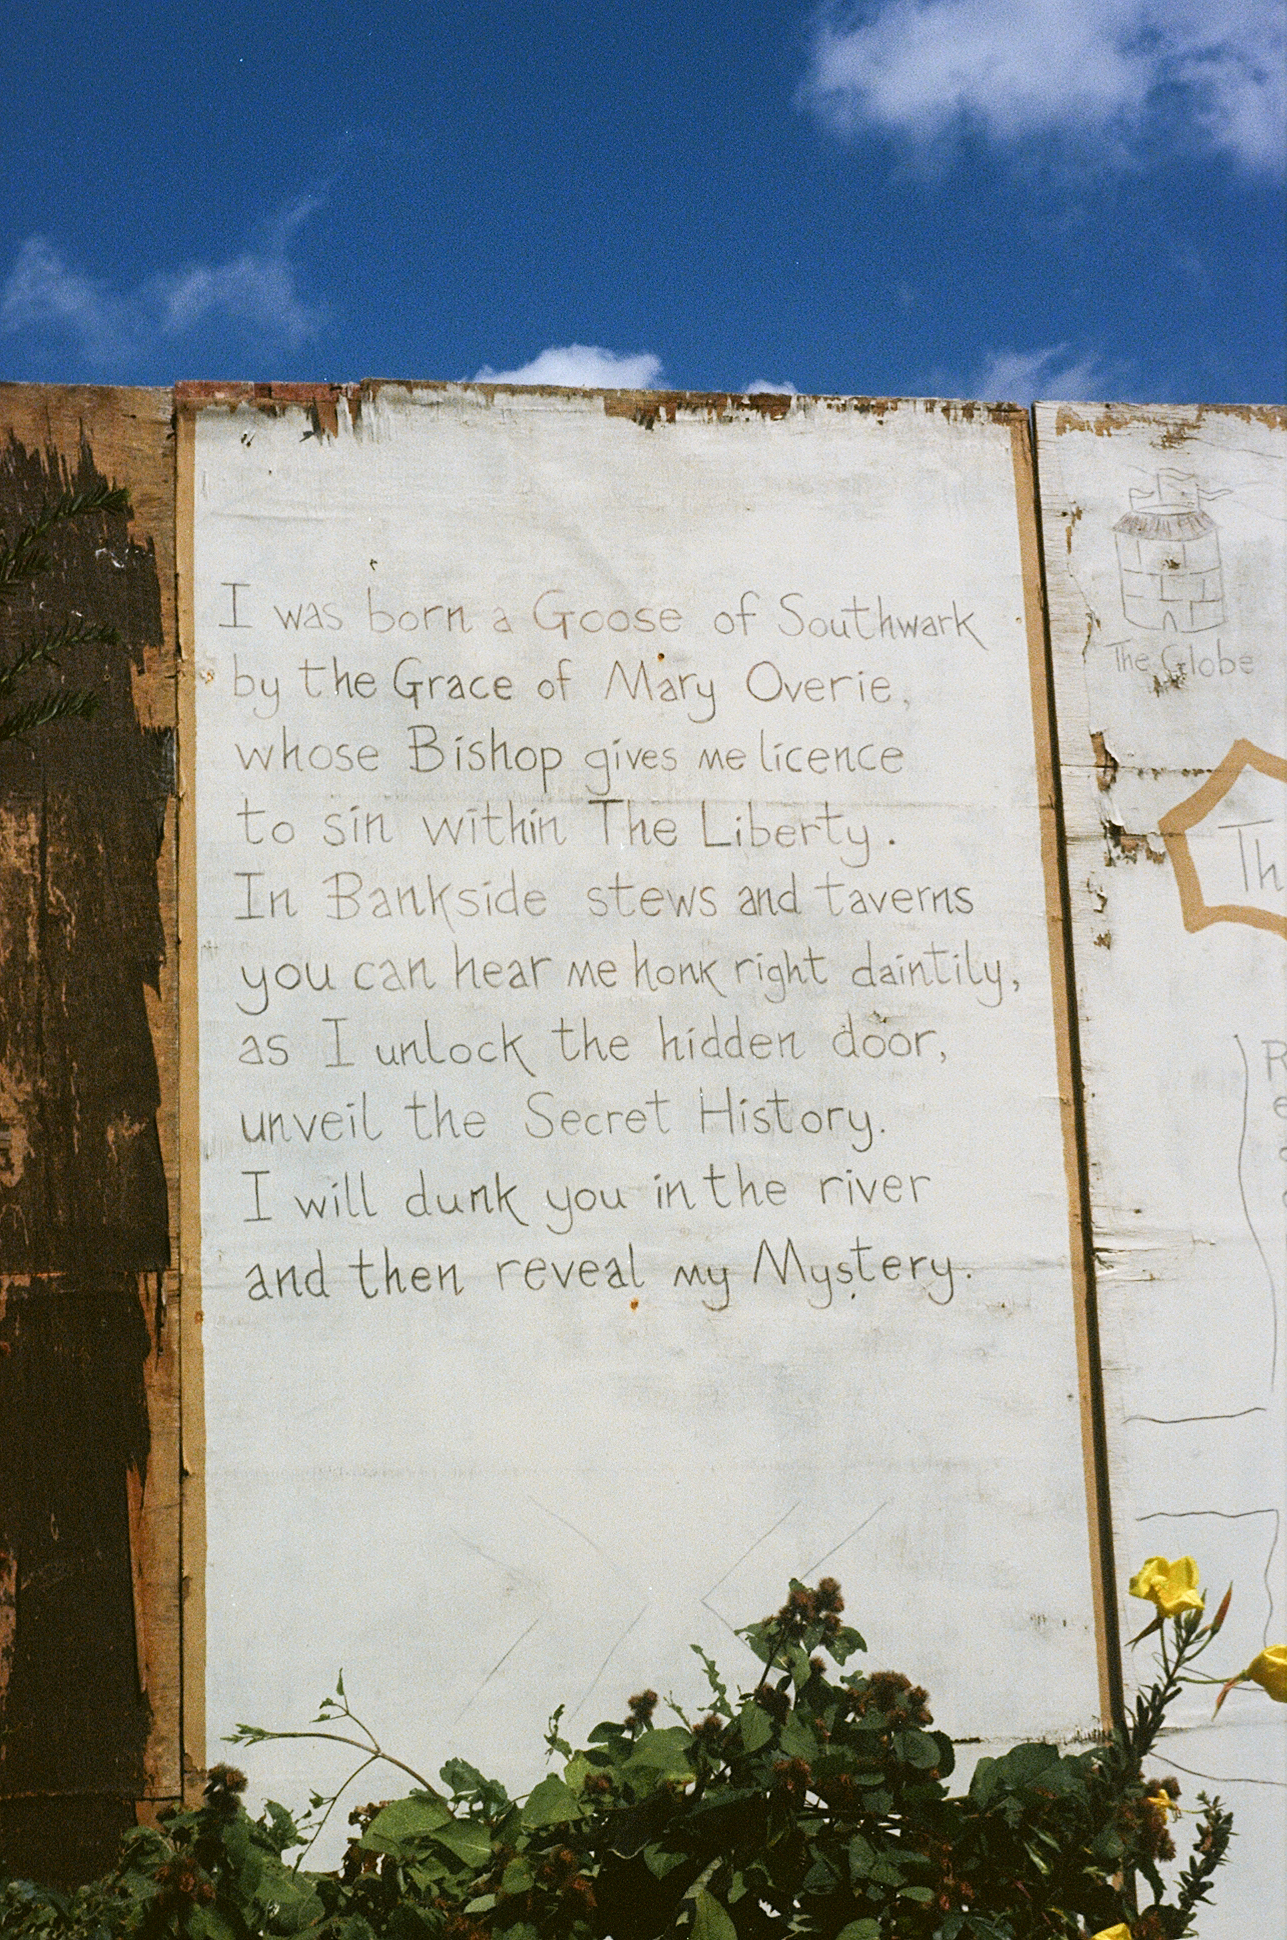 I was born a Goose of Southwark
by the Grace of Mary Overie,
whose Bishop gives me licence
to sin within The Liberty.
In Bankside stews and taverns
you can hear me honk right daintily,
as I unlock the hidden door,
unveil the Secret History.
I will dunk you in the river
and then reveal my Mystery.
The Globe